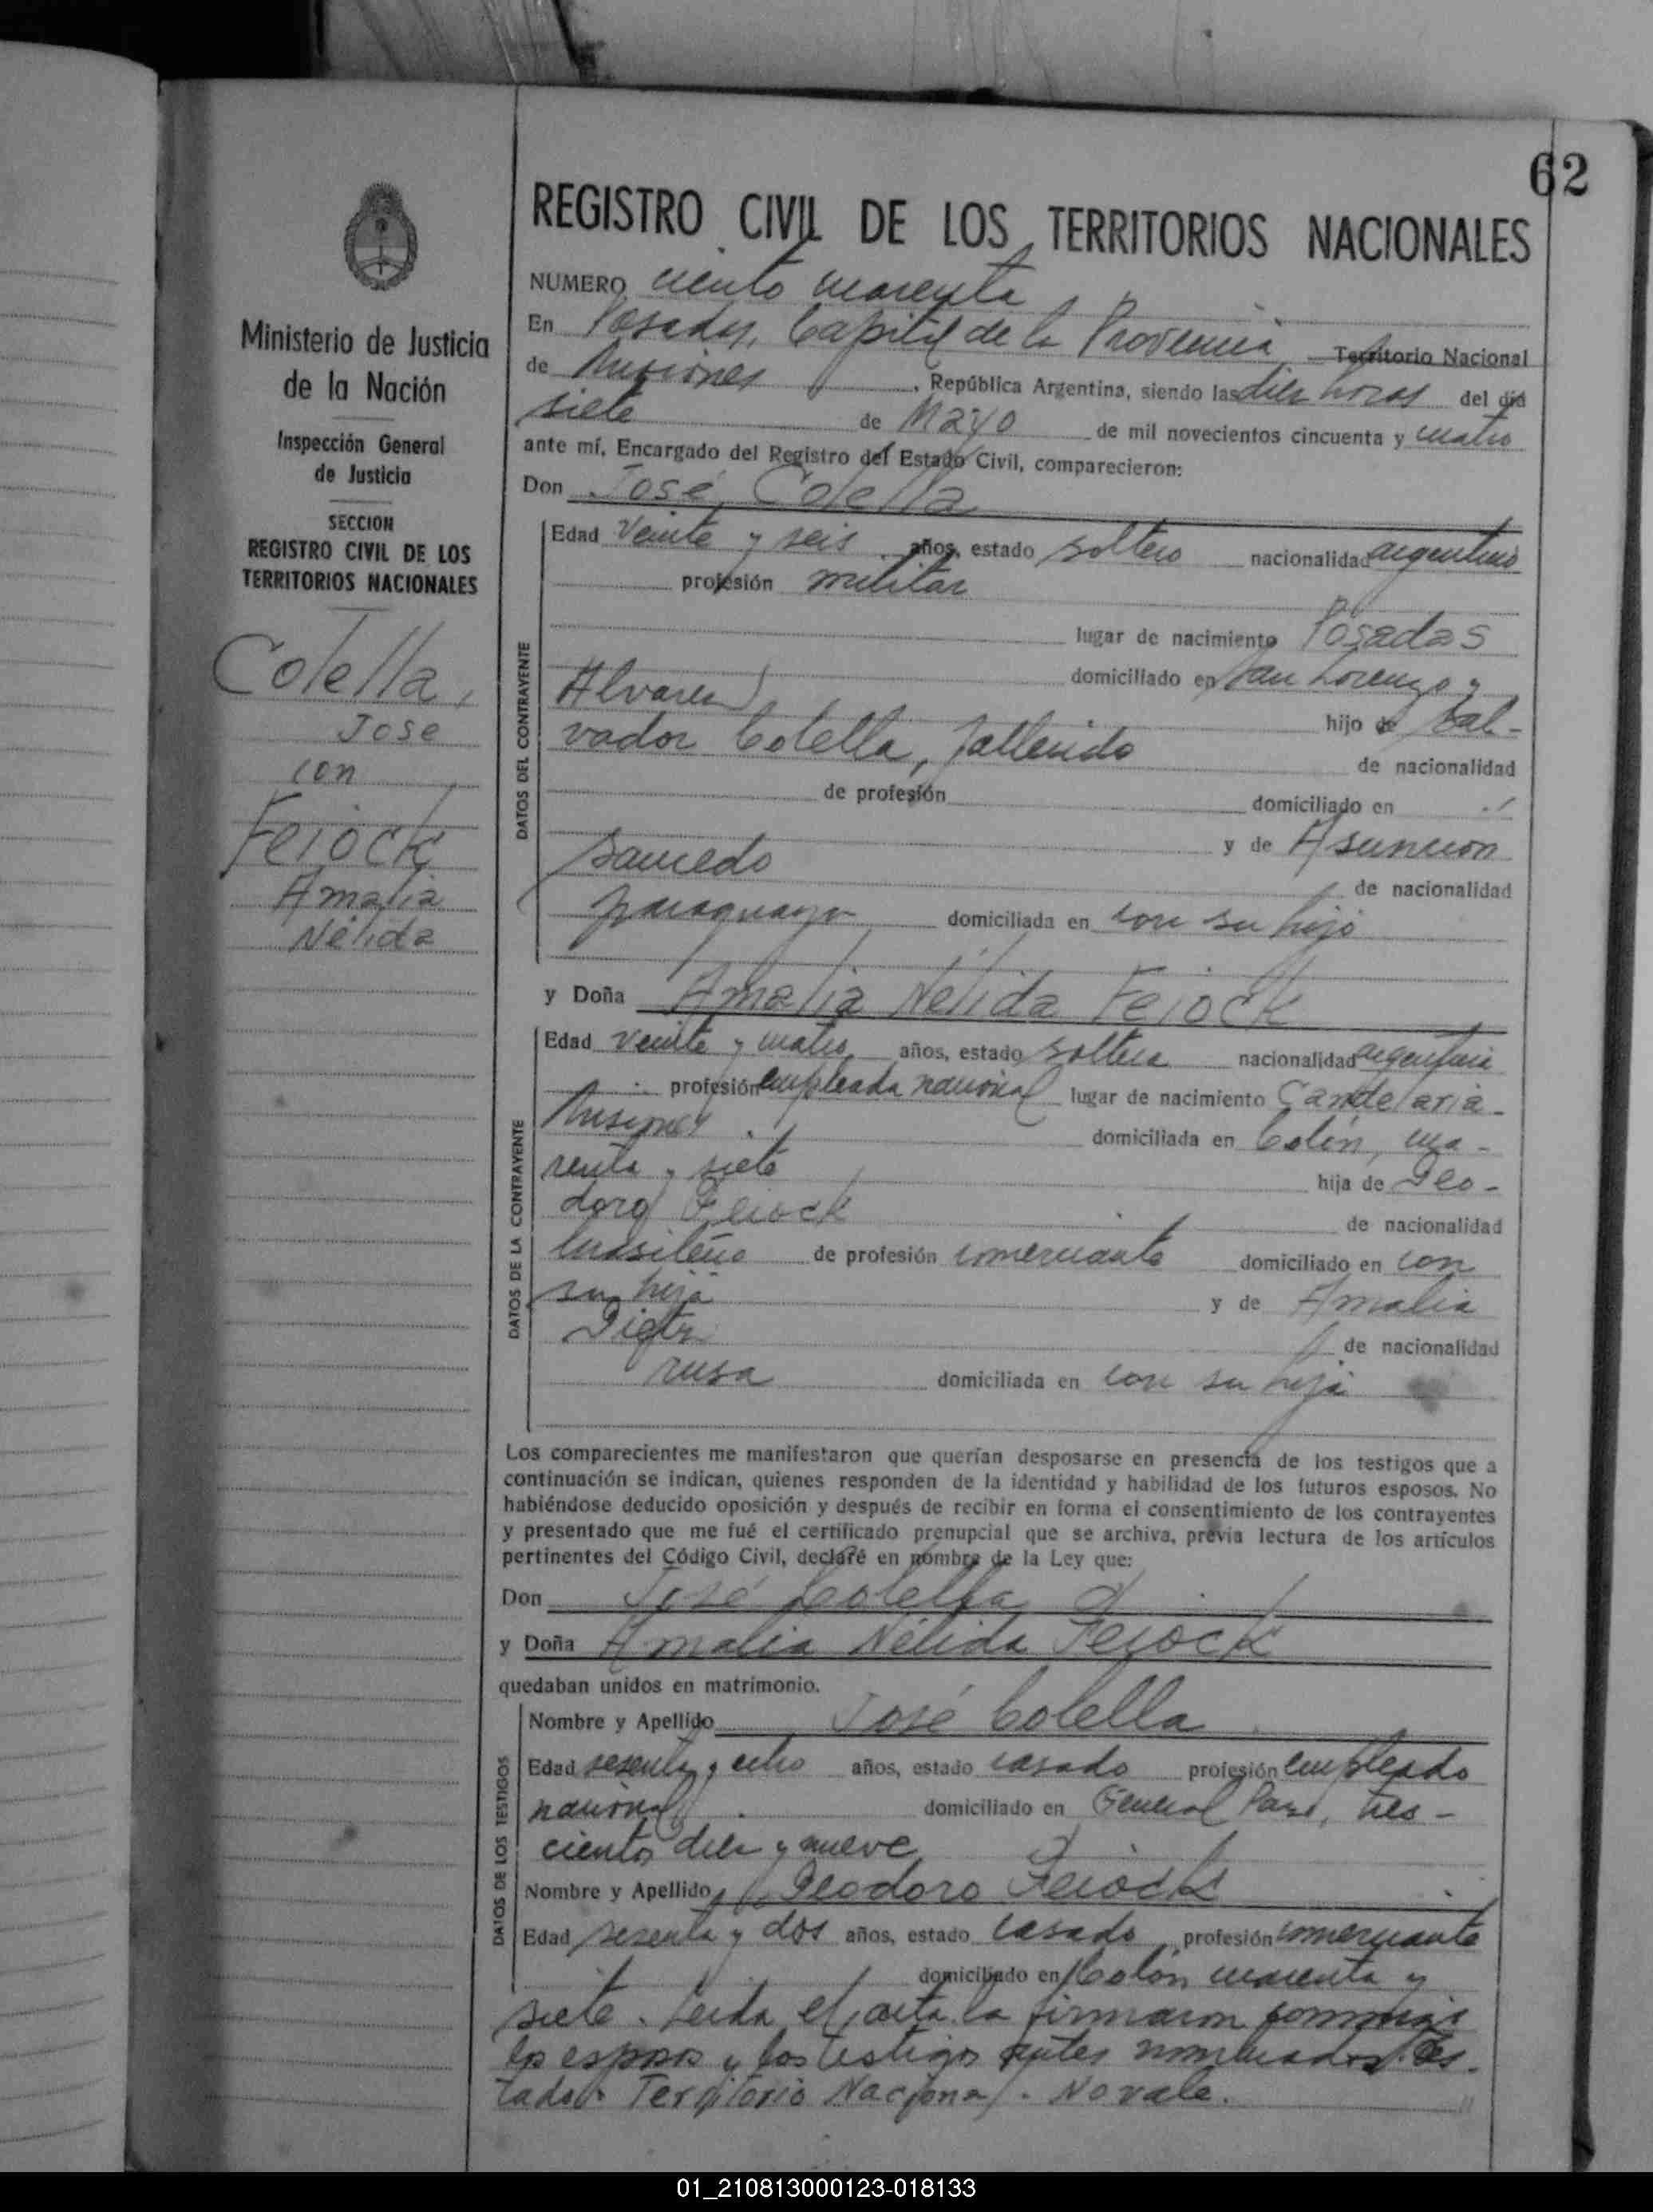 62
REGISTRO CIVIL DE LOS TERRITORIOS NACIONALES
Ministerio de Justicia
de la Nación
Inspección General
de Justicia
SECCION
REGISTRO CIVIL DE LOS
TERRITORIOS NACIONALES
Colella,
José
con
Feiock
Amalia
Nélida
NUMERO ciento cuarenta
En Posadas, Capital de la Provincia Territorio Nacional
de Misiones, República Argentina, siendo las diez horas del día
siete de Mayo de mil novecientos cincuenta y cuatro
ante mí, Encargado del Registro del Estado Civil, comparecieron:
Don José Colella
DATOS DEL CONTRAYENTE
Edad veinte y seis años, estado soltero nacionalidad argentino
profesión militar
lugar de nacimiento Posadas
domiciliado en San Lorenzo y
Alvarez hijo de Sal-
vador Colella, fallecido de nacionalidad
de profesión domiciliado en
y de Asunción
Saucedo de nacionalidad
paraguaya domiciliada en con su hijo
y Doña Amalia Nélida Feiock
DATOS DE LA CONTRAYENTE
Edad veinte y cuatro años, estado soltera nacionalidad argentina
profesión empleada nacional lugar de nacimiento Candelaria-
Misiones domiciliada en Colón, cua-
renta y siete hija de Teo-
doro Feiock de nacionalidad
brasileño de profesión comerciante domiciliado en con
su hija y de Amalia
de nacionalidad
rusa domiciliada en con su hija
Los comparecientes me manifestaron que querían desposarse en presencia de los testigos que a
continuación se indican, quienes responden de la identidad y habilidad de los futuros esposos. No
habiéndose deducido oposición y después de recibir en forma el consentimiento de los contrayentes
y presentado que me fué el certificado prenupcial que se archiva, prévia lectura de los artículos
pertinentes del Código Civil, declaré en nombre de la Ley que:
Don José Colella
y Doña Amalia Nélida Feiock
quedaban unidos en matrimonio.
DATOS DE LOS TESTIGOS
Nombre y Apellido José Colella
Edad sesenta y ocho años, estado casado profesión empleado
nacional domiciliado en General Paz, tres-
cientos diez y nueve
Nombre y Apellido Teodoro Feiock
Edad sesenta y dos años, estado casado profesión comerciante
domiciliado en Colón cuarenta y
siete. Leída el acta la firmaron conmigo
los esposos y los testigos antes nombrados. Tes-
tado: Territorio Nacional. No vale.
01_210813000123-018133